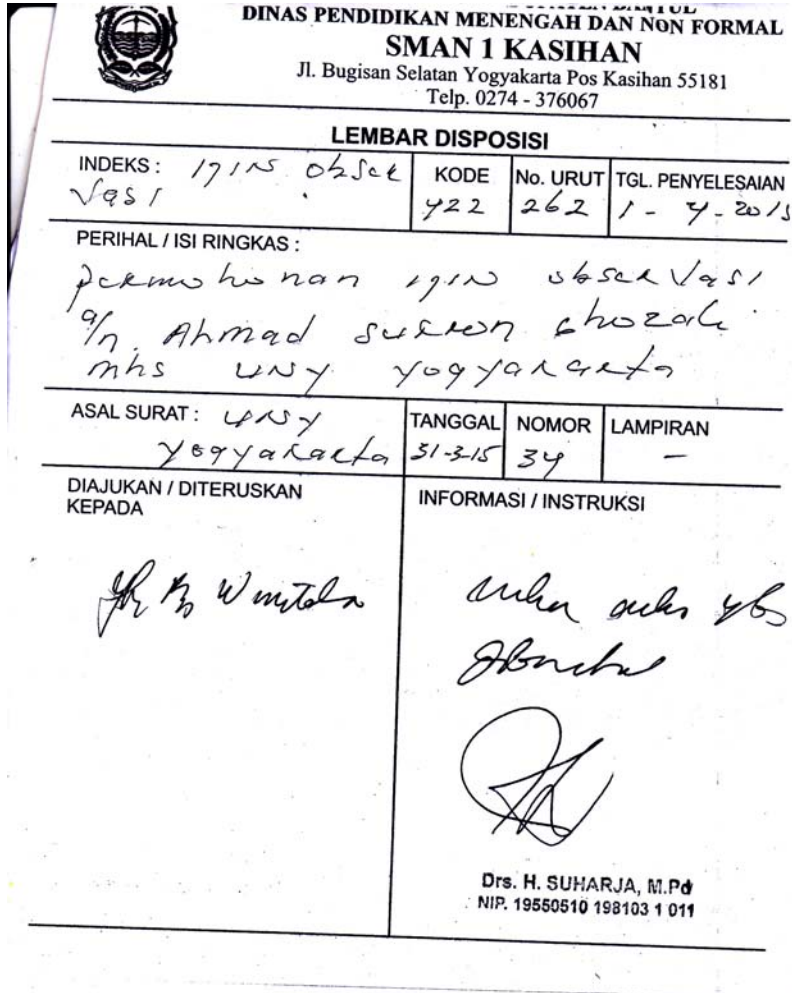 DINAS PENDIDIKAN MENENGAH DAN NON FORMAL
SMAN 1 KASIHAN
Jl. Bugisan Selatan Yogyakarta Pos Kasihan 55181
Telp. 0274 - 376067
LEMBAR DISPOSISI
INDEKS : ijin obser
vasi
KODE
422
No. URUT
262
TGL. PENYELESAIAN
1 - 4 - 2015
PERIHAL / ISI RINGKAS :
permohonan ijin observasi
a/n. Ahmad sukron ghozali
mhs UNY yogyakarta
ASAL SURAT : UNY
yogyakarta
TANGGAL
31-3-15
NOMOR
34
LAMPIRAN
-
DIAJUKAN / DITERUSKAN
KEPADA
INFORMASI / INSTRUKSI
ybs
Drs. H. SUHARJA, M.Pd
NIP. 19550510 198103 1 011